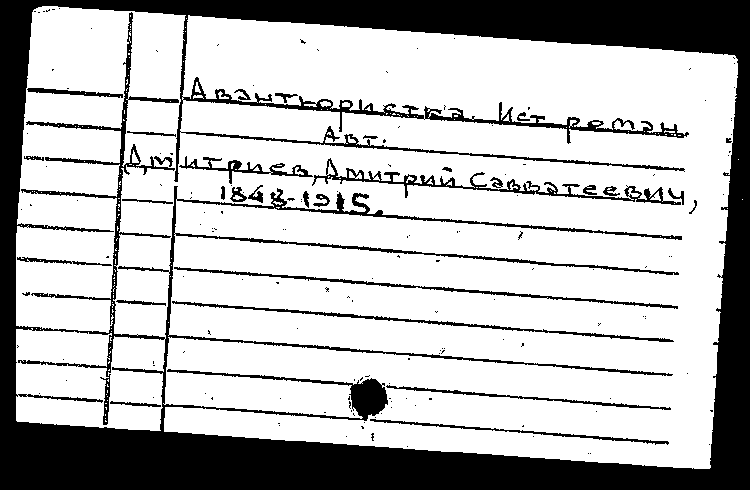 Авантюристка. Ист. роман.
Авт.
Дмитриев, Дмитрий Савватеевич,
1848-1915.